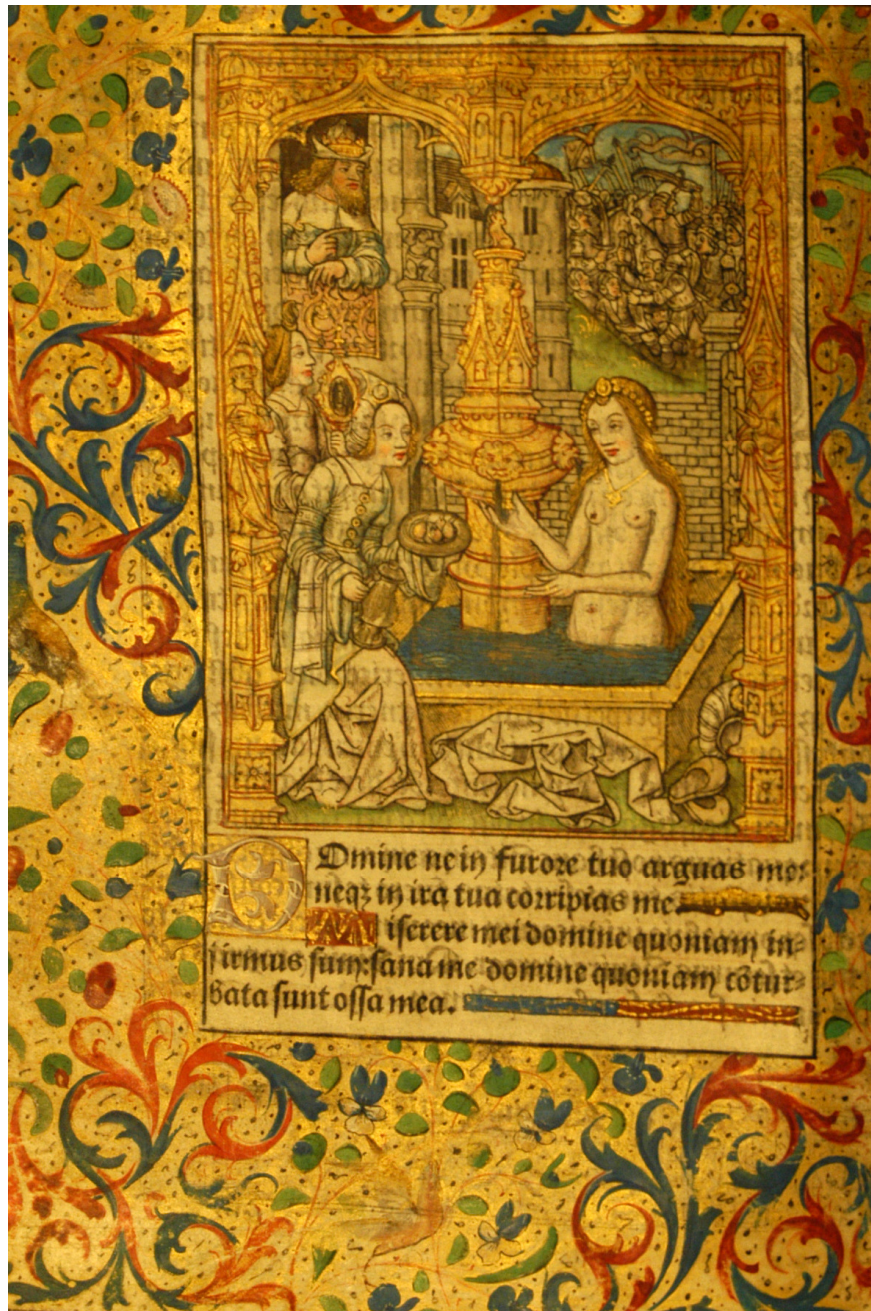 Domine ne in furore tuo arguas me:
neqꝫ in ira tua corripias me
Miserere mei domine quoniam in-
firmus sum: sana me domine quoniam cōtur-
bata sunt ossa mea.